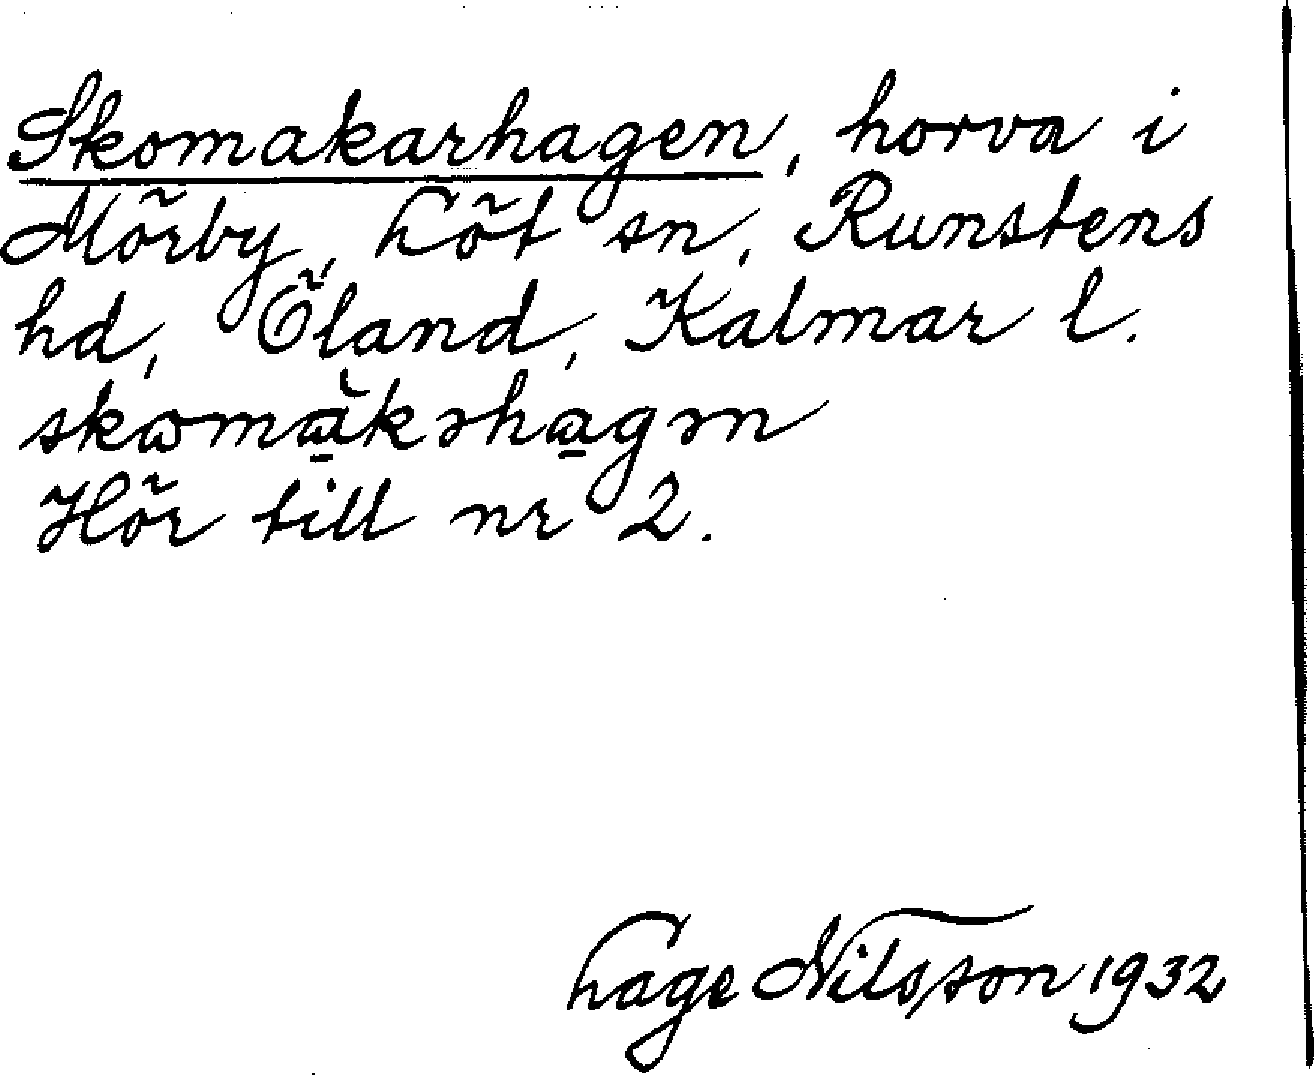 Skomakarhagen, horva i
Mörby, Löt sn, Runstens
hd, Öland, Kalmar l.
skωmà̱kəha̱gən
Hör till nr 2.
Lage Nilsson 1932